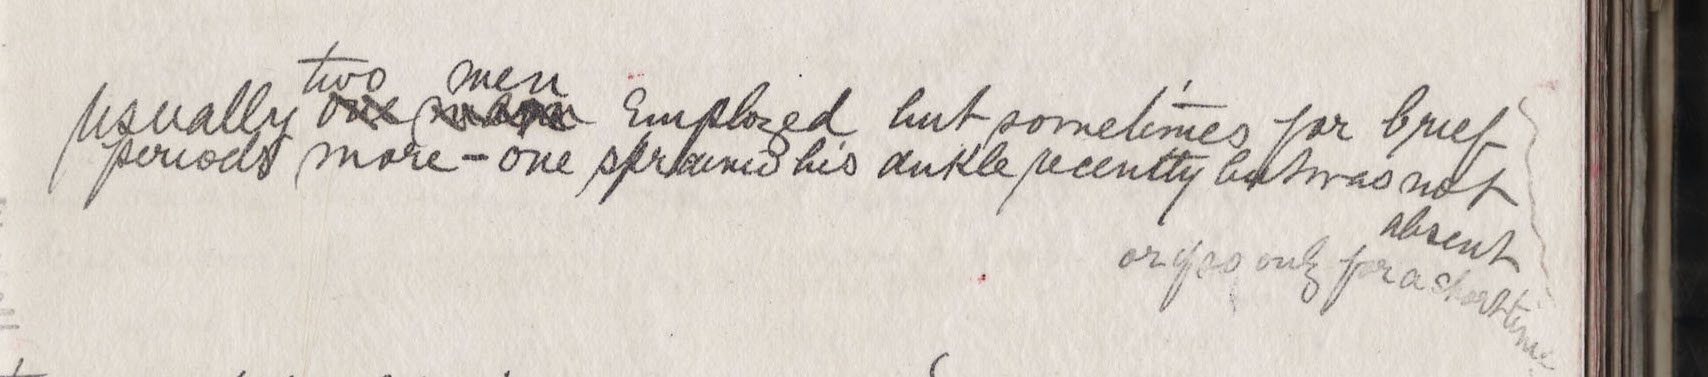 two men
usually one man Employed but sometimes for brief
periods more - one sprained his ankle recently but was not
absent
or if so only for a short time